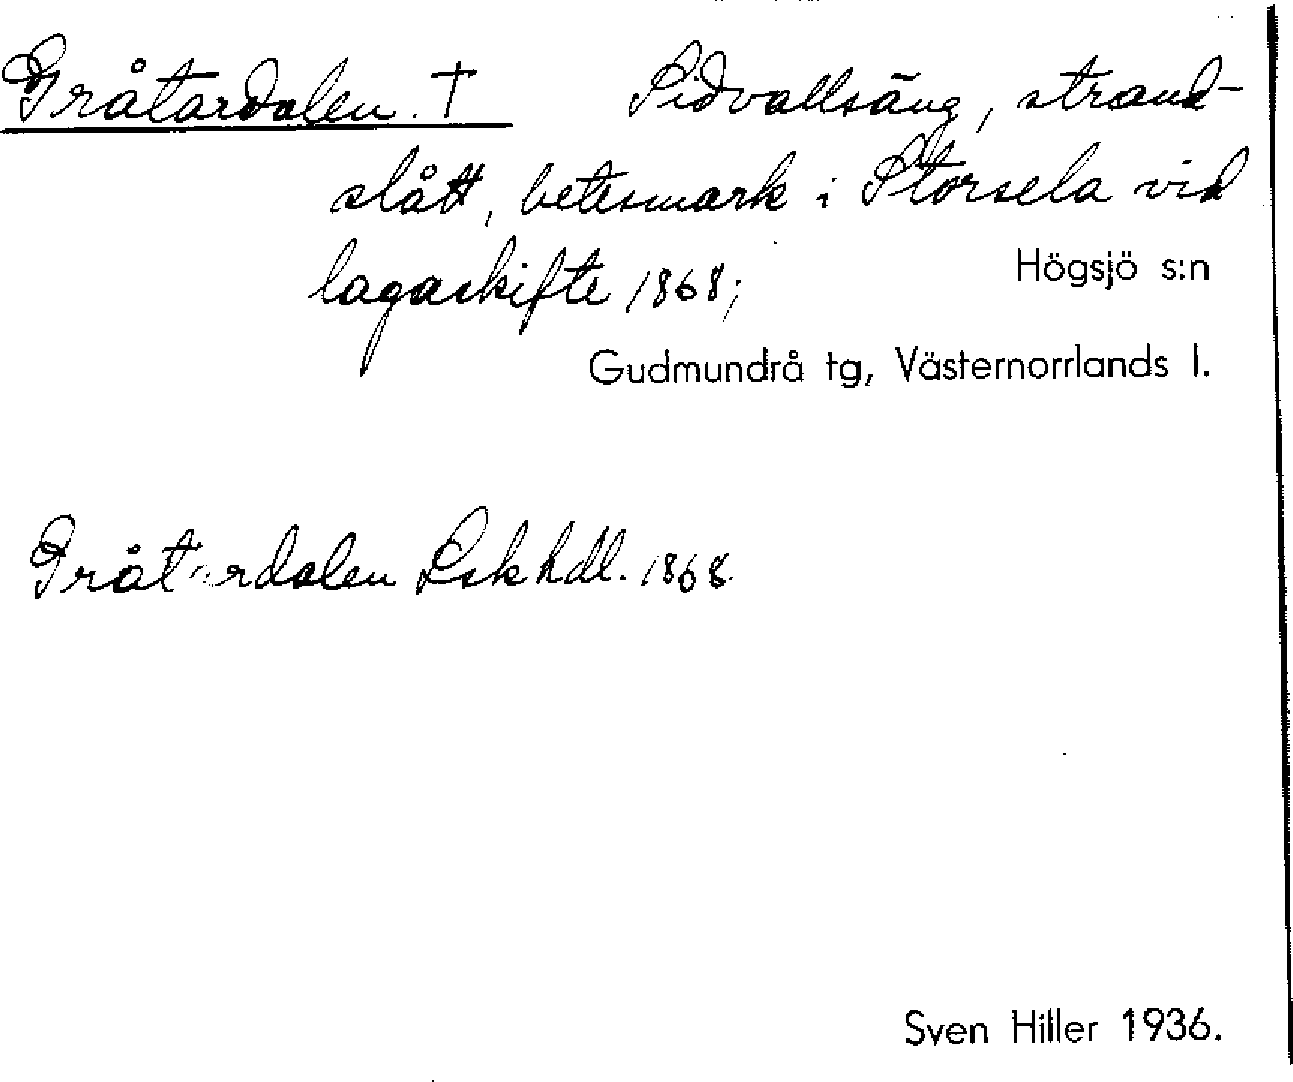 Gråtardalen. † Sidvallsäng, strand-
slått, betesmark i Storsela vid
lagaskifte 1868;
Högsjö s:n
Gudmundrå tg, Västernorrlands l.
Gråtardalen Lsk hdl. 1868.
Sven Hiller 1936.